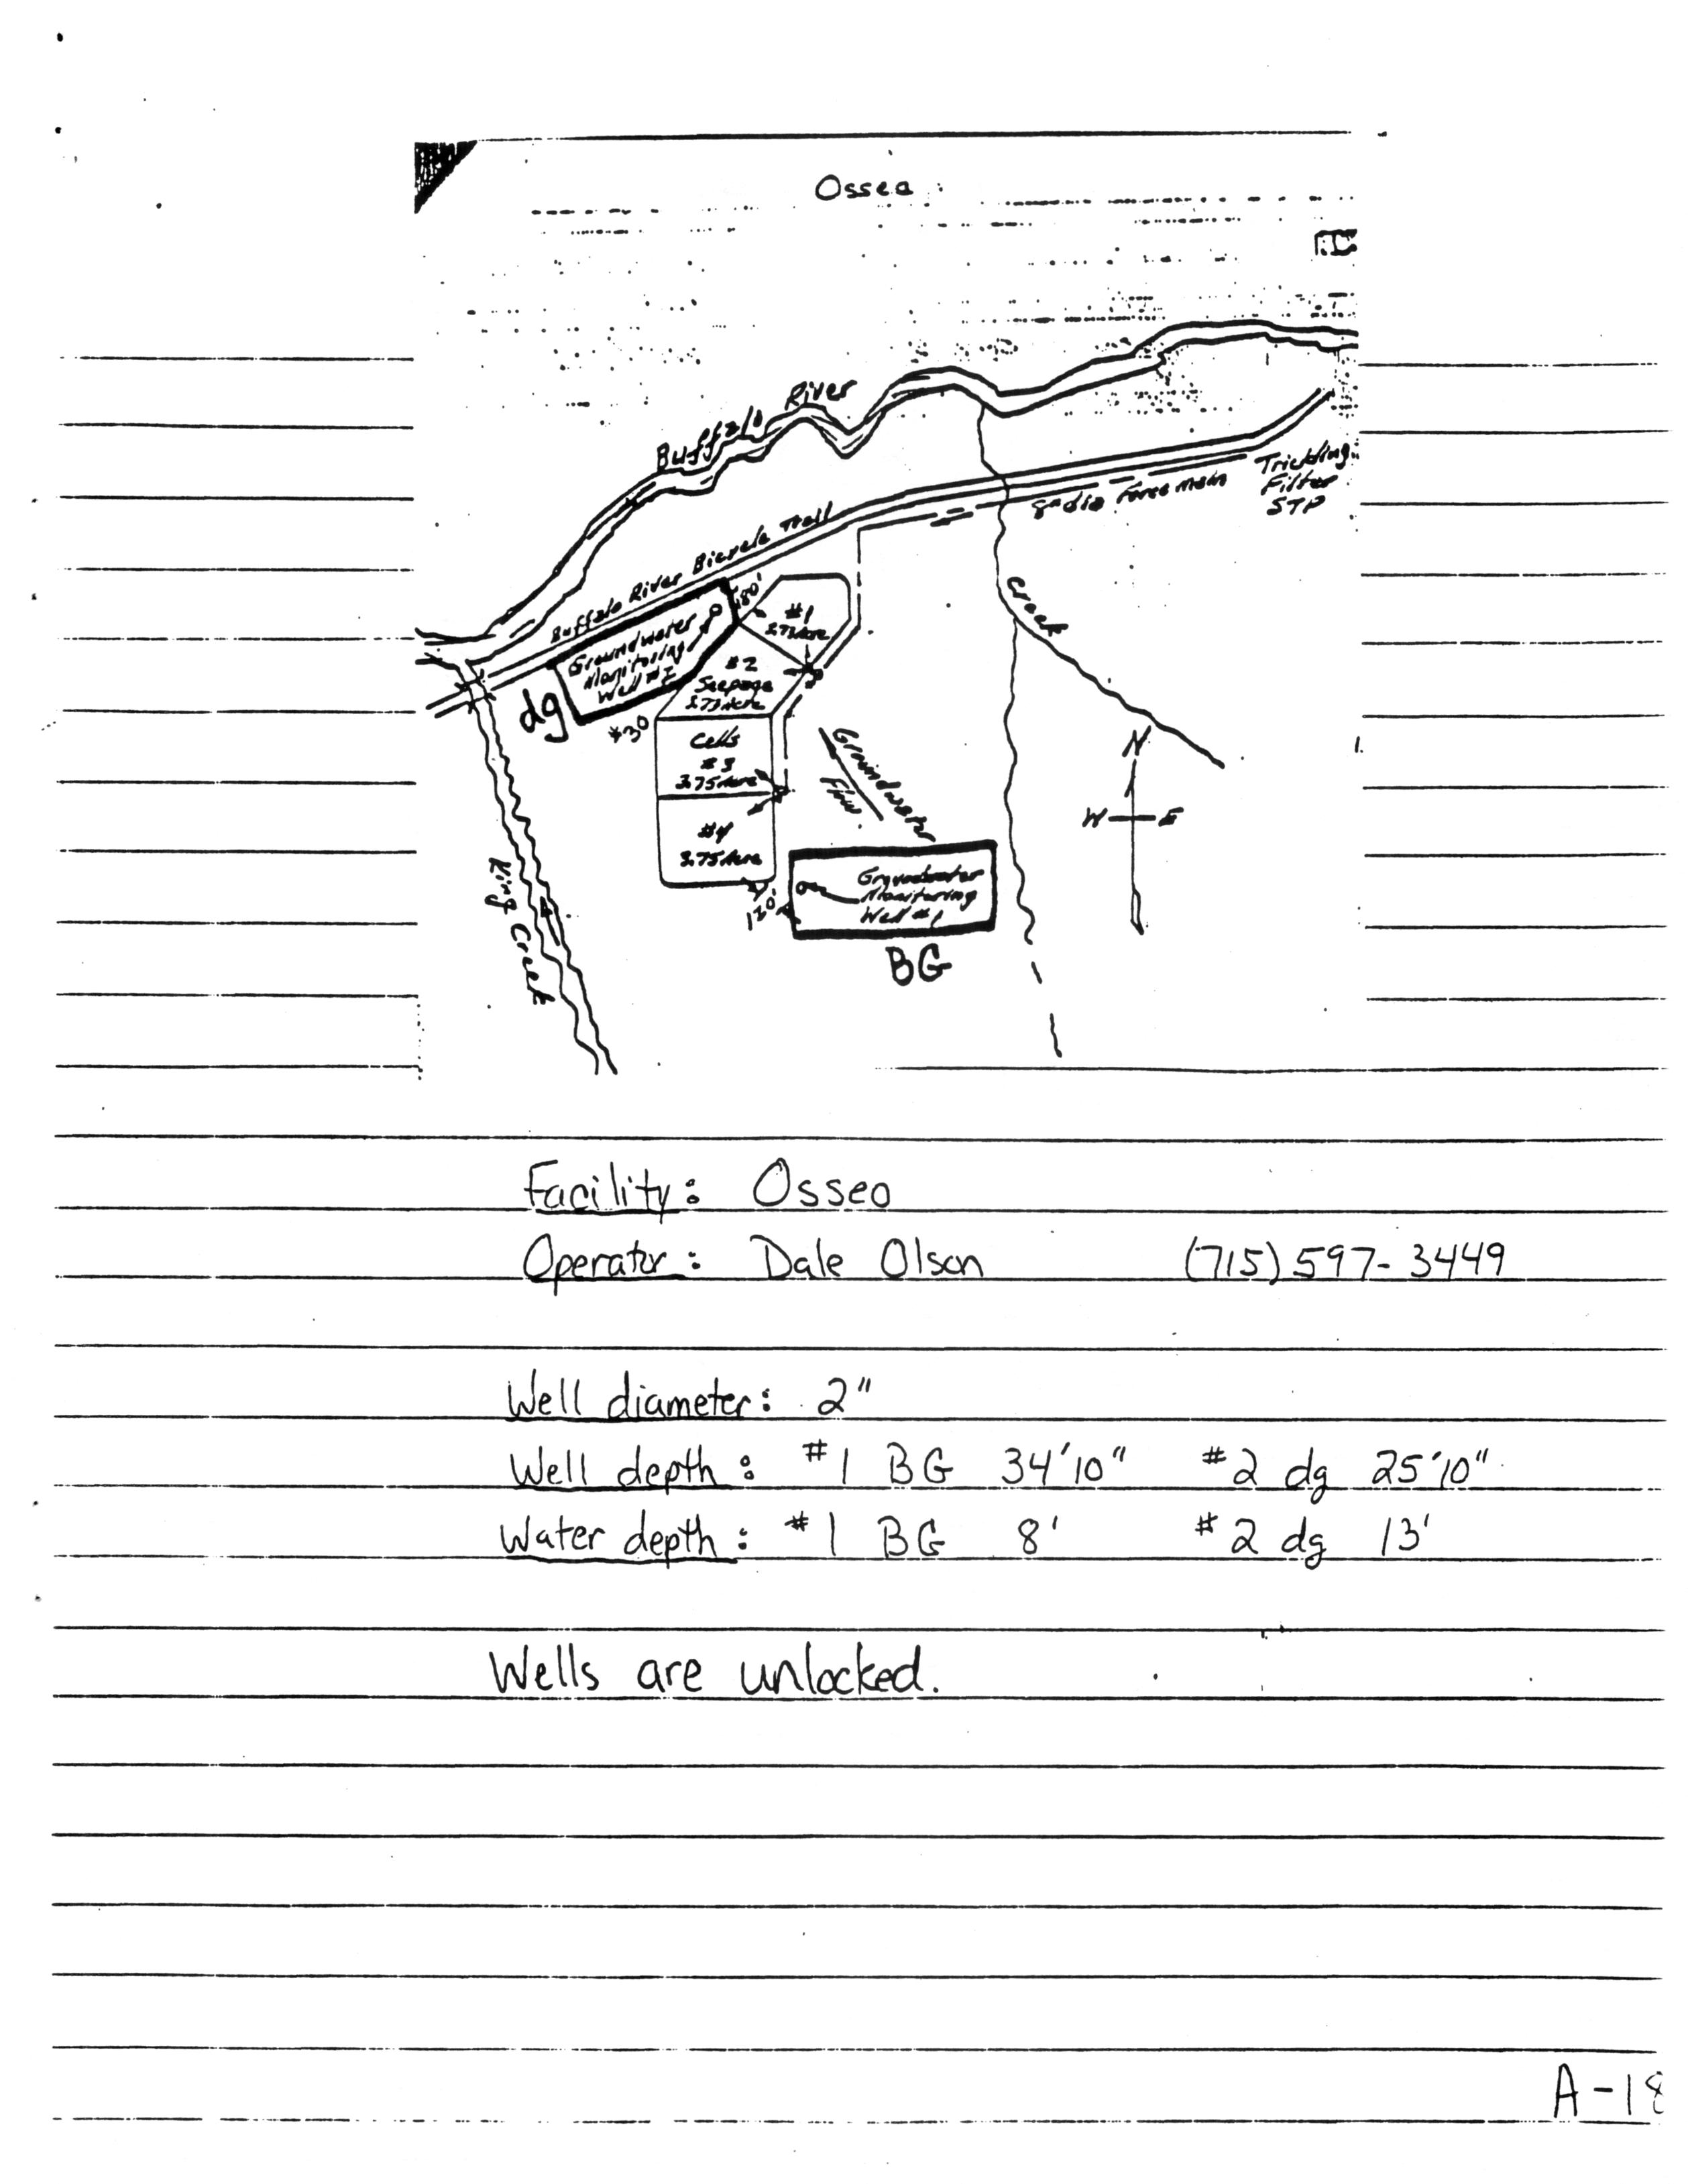 Osseo
Buffalo River
Buffalo River Bicycle Trail
8" dia Force main
Trickling
Filter
STP
Creek
180'
#1
3.75 Acre
Groundwater
Monitoring
Well #2
dg
#2
Seepage
3.75 Acre
#3
Cells
#3
3.75 Acre
#4
3.75 Acre
Groundwater
Flow
N
W E
King Creek
120'
Groundwater
Monitoring
Well #1
BG
Facility: Osseo
Operator: Dale Olson (715) 597-3449
Well diameter: 2"
Well depth: #1 BG 34'10" #2 dg 25'10"
Water depth: #1 BG 8' #2 dg 13'
Wells are unlocked.
A-18